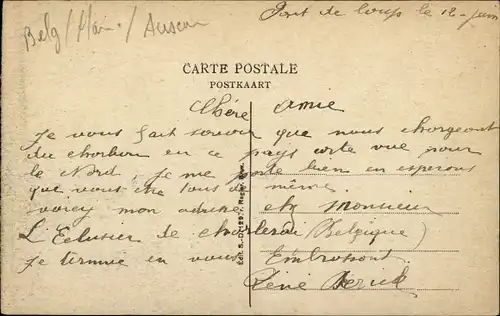 Belg / Hai. / Auseau
Pont de loup le 12 juin
CARTE POSTALE
POSTKAART
Chère Amie
Je vous fait savoir que nous chargeont
du charbon en ce pays cette vue pour
le Nord, je me porte bien en esperons
que vous ete tous de même.
voicy mon adresse chez Monsieur
L'Eclusier de charleroi (Belgique)
Je termine en vous Embrassant.
René